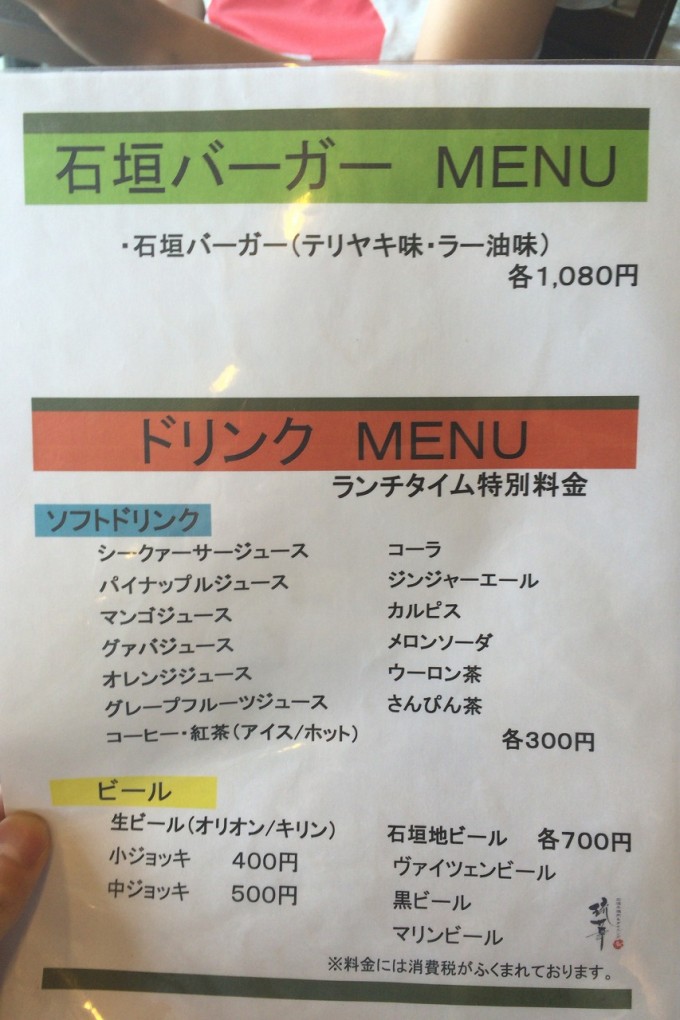 石垣バーガー MENU
・石垣バーガー（テリヤキ味・ラー油味）
各1,080円
ドリンク MENU
ランチタイム特別料金
ソフトドリンク
シークァーサージュース
パイナップルジュース
マンゴジュース
グァバジュース
オレンジジュース
グレープフルーツジュース
コーヒー・紅茶（アイス/ホット）
コーラ
ジンジャーエール
カルピス
メロンソーダ
ウーロン茶
さんぴん茶
各300円
ビール
生ビール（オリオン/キリン）
小ジョッキ 400円
中ジョッキ 500円
石垣地ビール 各700円
ヴァイツェンビール
黒ビール
マリンビール
琉華
※料金には消費税がふくまれております。